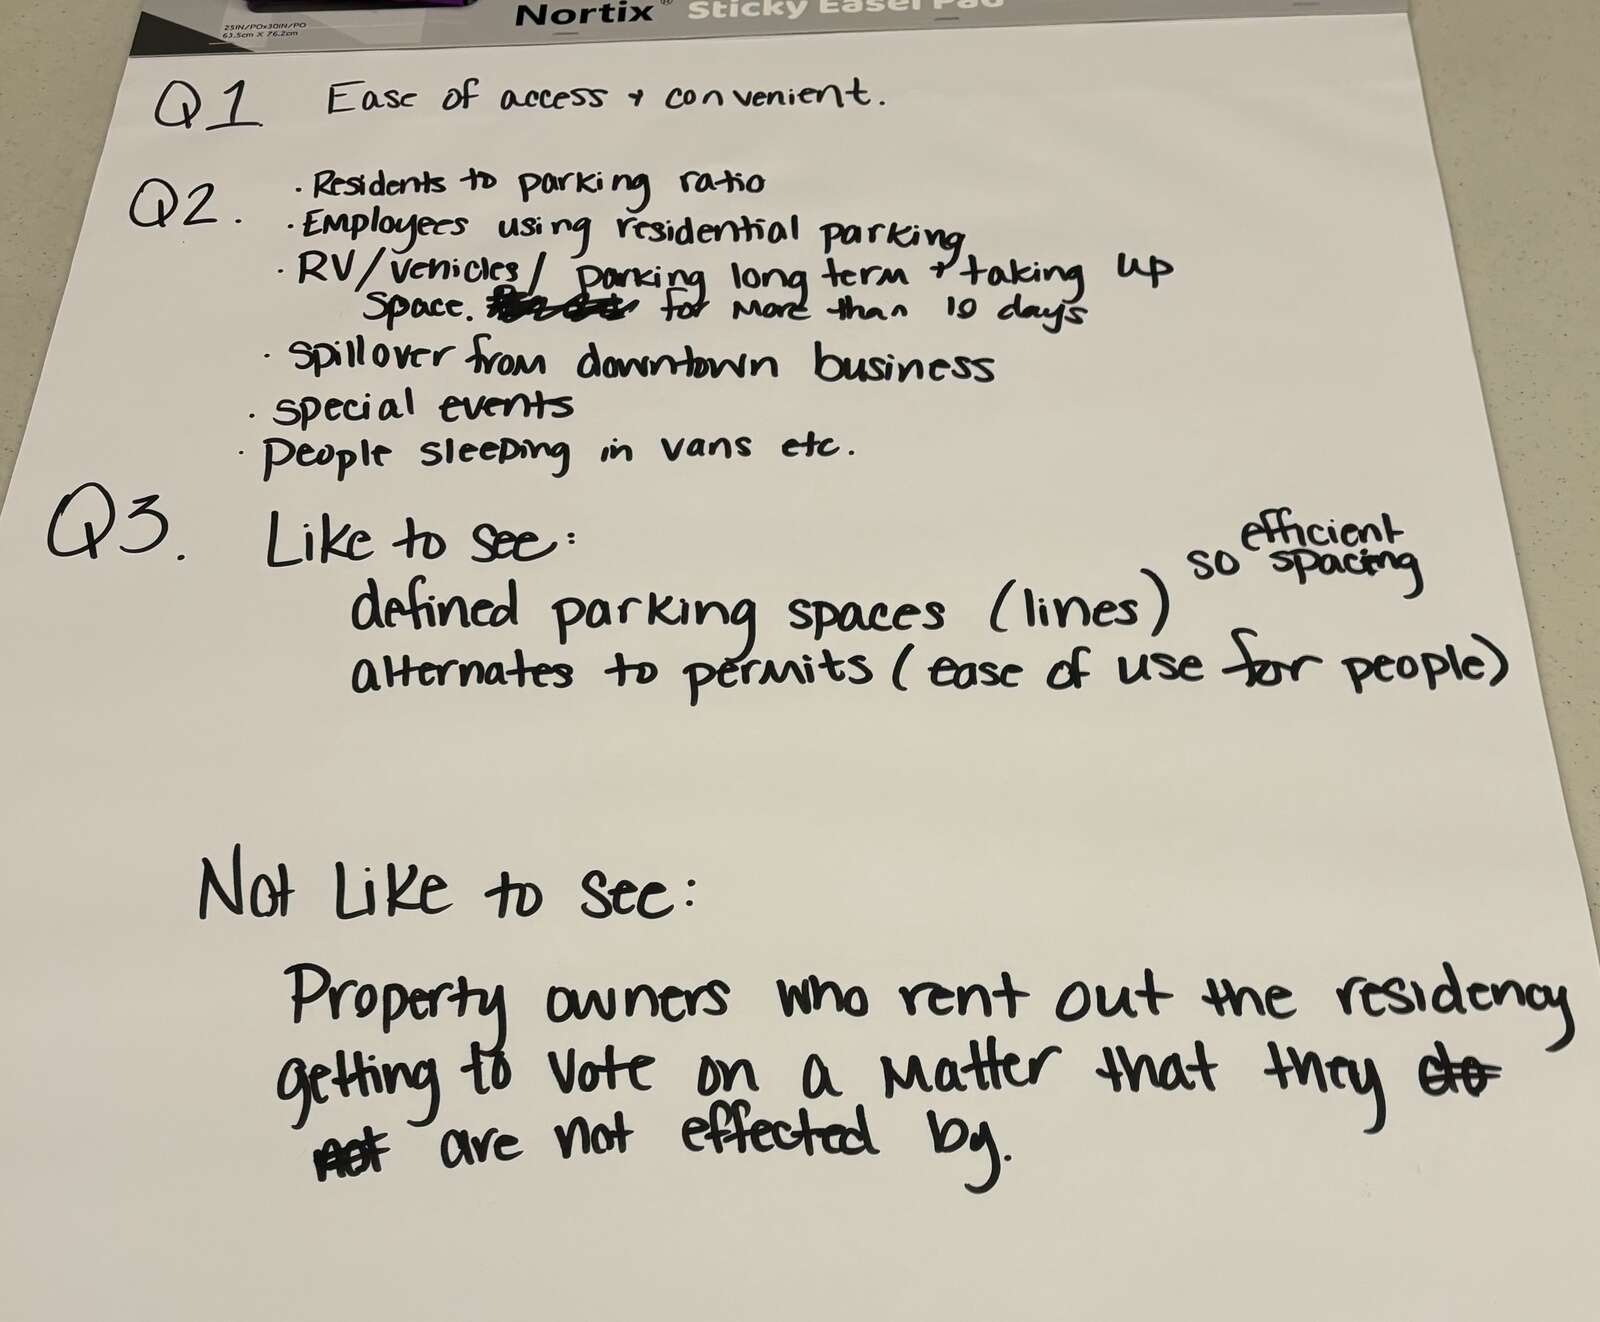 25IN/PO×30IN/PO
63.5cm X 76.2cm
Nortix® Sticky Easel Pad
Q1 Ease of access + convenient.
Q2. · Residents to parking ratio
· Employees using residential parking
· RV/vehicles/ parking long term + taking up
space. for more than 10 days
· spillover from downtown business
· special events
· People sleeping in vans etc.
Q3. Like to see:
defined parking spaces (lines) so efficient spacing
alternates to permits (ease of use for people)
Not Like to see:
Property owners who rent out the residency
getting to vote on a matter that they do
not are not effected by.